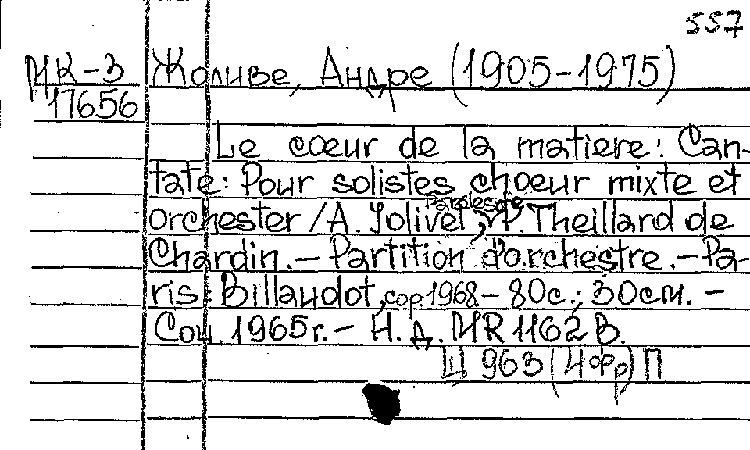 557
МК-3 Жоливе, Андре (1905-1975)
17656
Le cœur de la matiere: Can-
tate: Pour solistes choeur mixte et
orchester / A. Jolivet; Paroles de P. Theillard de
Chardin.- Partition d'orchestre.- Pa-
ris: Billaudot, cop. 1968- 80с.; 30см. -
Соч. 1965г.- Н. д. MR 1162 B.
Ц 963 (4фр) П